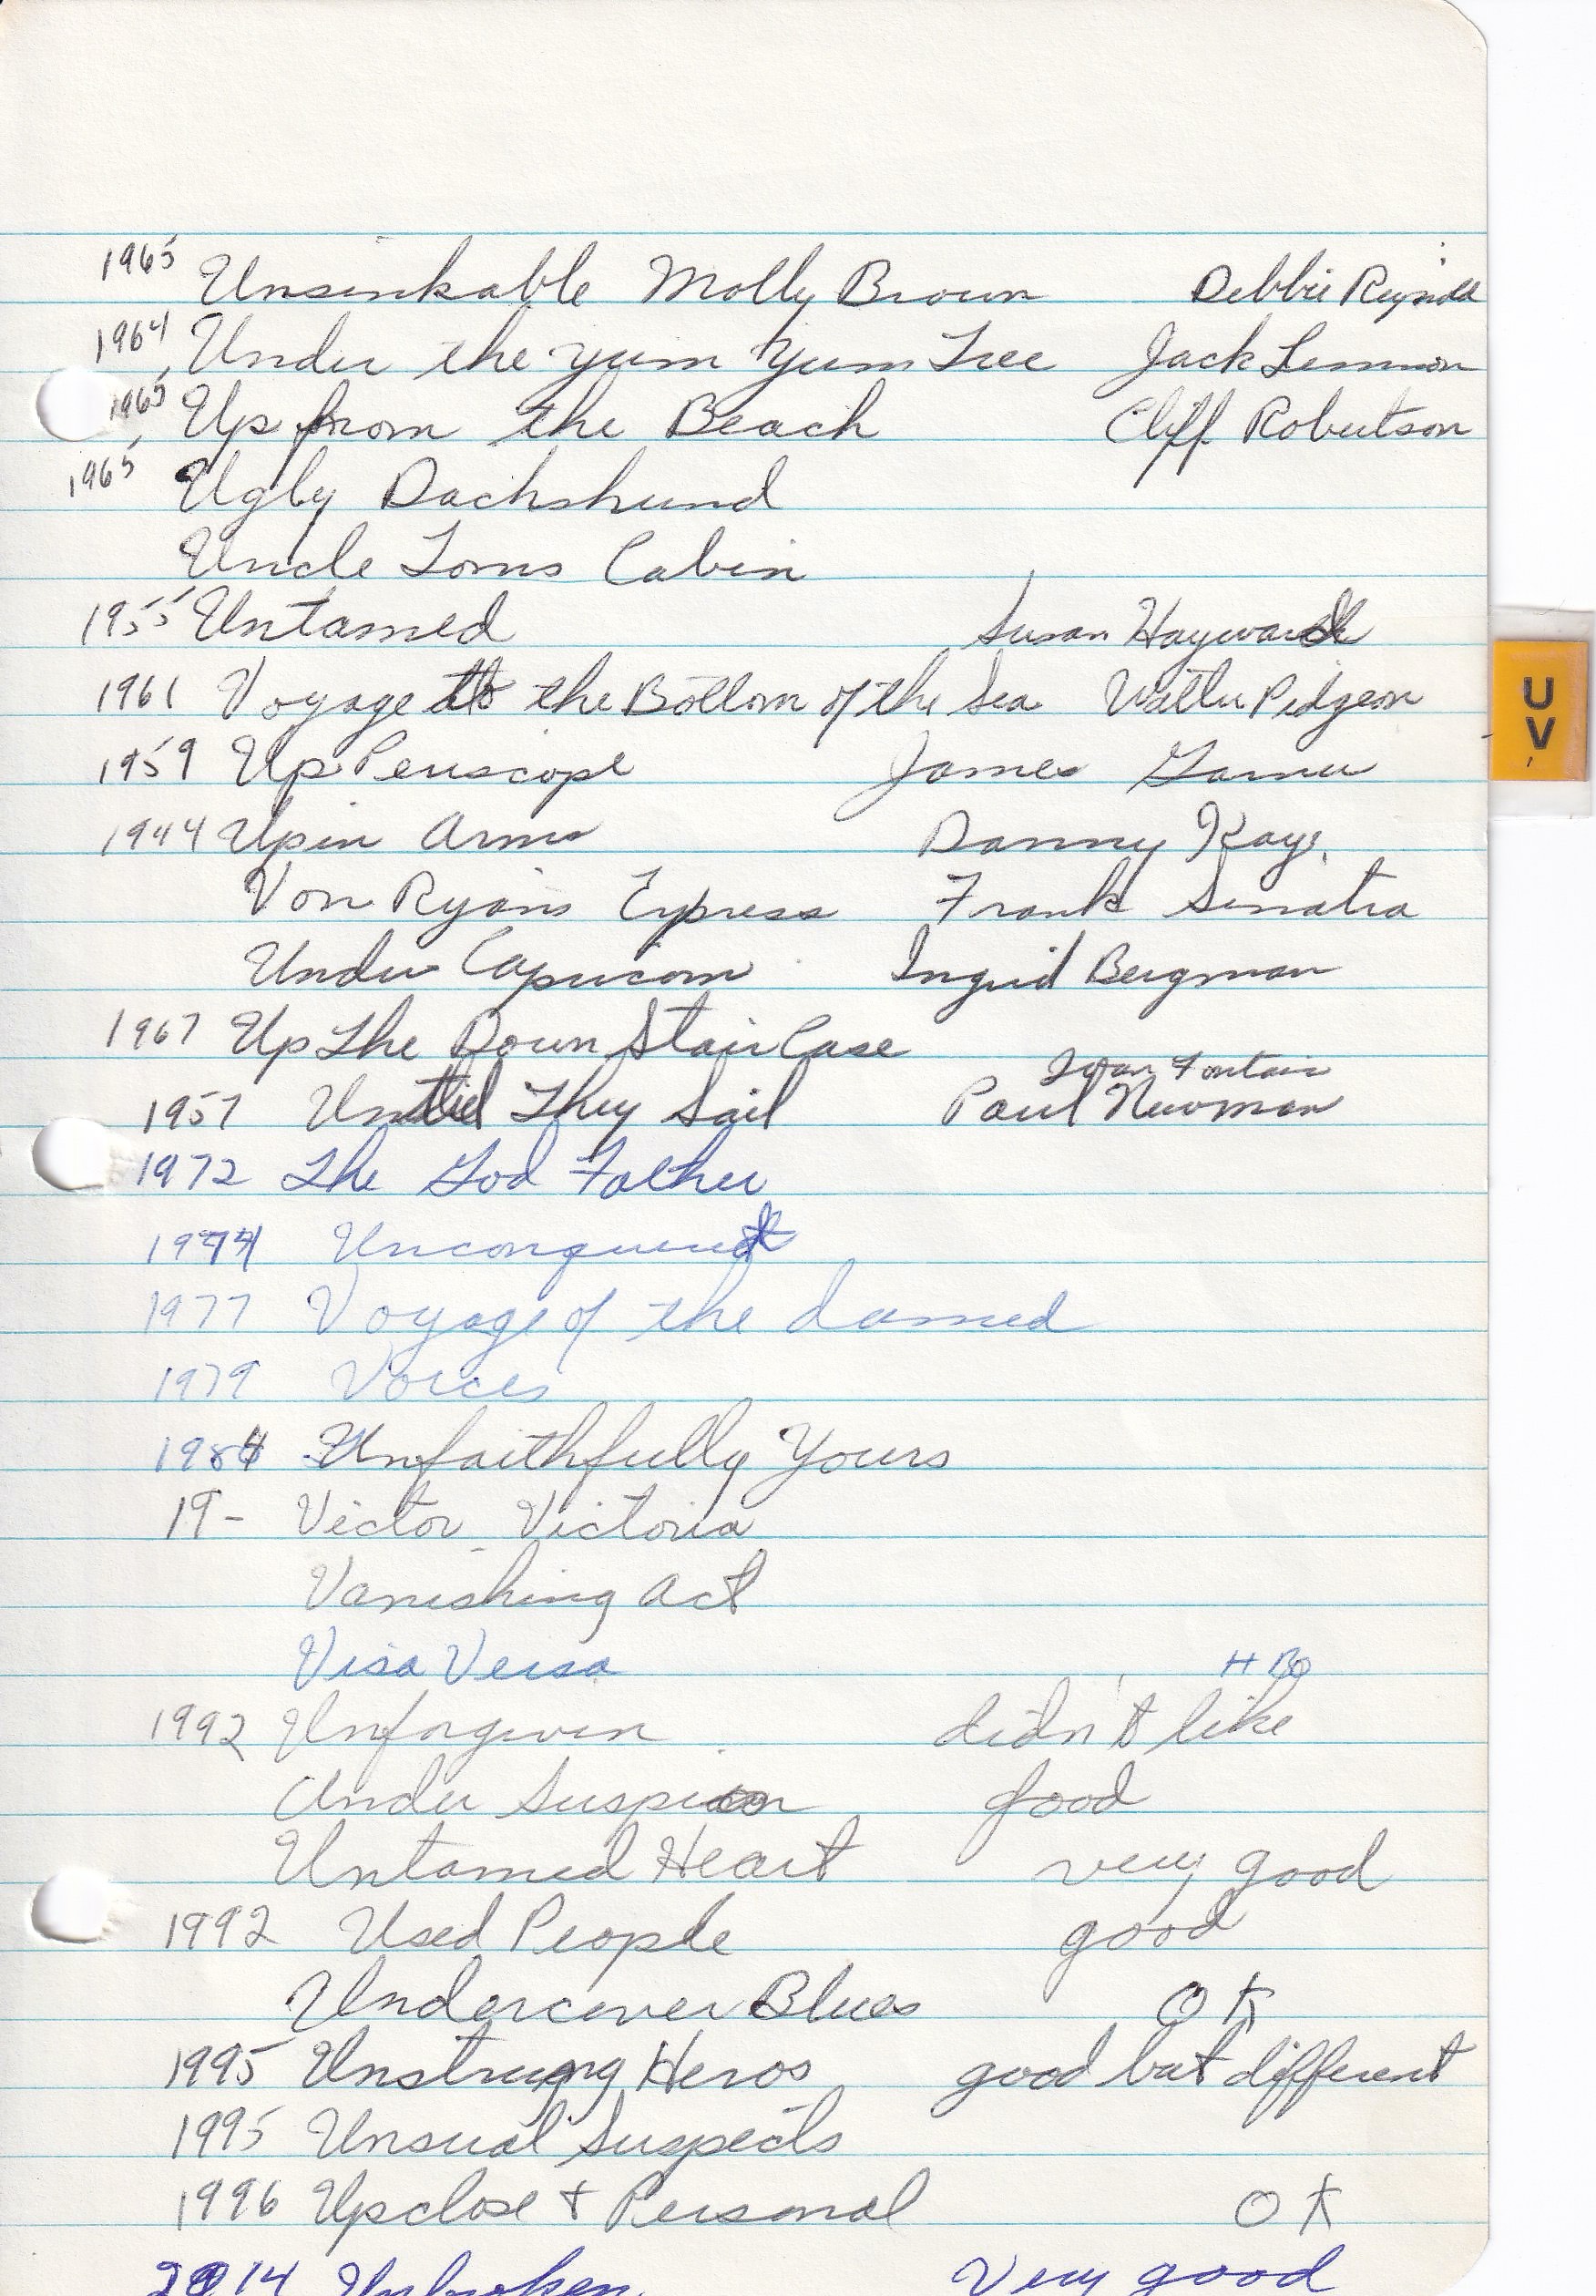 1965 Unsinkable Molly Brown Debbie Reynolds
1964 Under the yum yum Tree Jack Lemmon
1965 Up from the Beach Cliff Robertson
1965 Ugly Dachshund
Uncle Toms Cabin
1955 Untamed Susan Hayward
1961 Voyage to the Bottom of the Sea Walter Pidgeon
1959 Up Periscope James Garner
1944 Up in Arms Danny Kaye
Von Ryans Express Frank Sinatra
Under Capricorn Ingrid Bergman
1967 Up The Down StairCase
Joan Fontain
1957 Until They Sail Paul Newman
1972 The God Father
Unconquered
1977 Voyage of the damed
1979 Voices
1984 Unfaithfully Yours
19- Victor Victoria
Vanishing Act
Visa Versa HBO
1992 Unforgiven didn't like
Under Suspicion good
Untamed Heart very good
1992 Used People good
Undercover Blues OK
1995 Unstrung Heros good but different
1995 Unsual Suspects
1996 Upclose + Personal OK
2014 Unbroken Very good
U
V